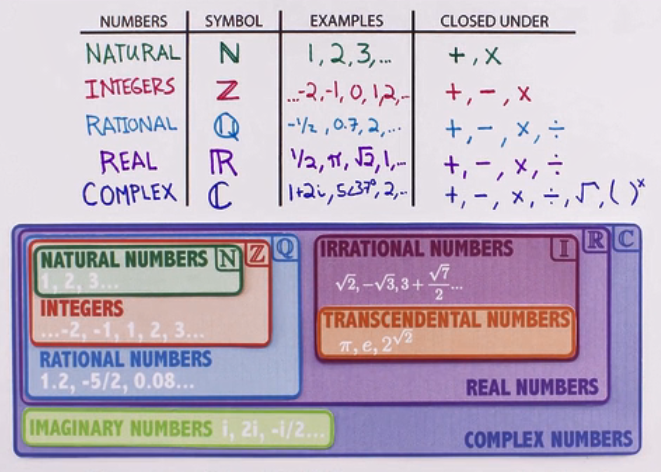 NUMBERS SYMBOL EXAMPLES CLOSED UNDER
NATURAL ℕ 1, 2, 3,... +, ×
INTEGERS ℤ ...-2, -1, 0, 1, 2, .. +, -, ×
RATIONAL ℚ -1/2, 0.7, 2, ... +, -, ×, ÷
REAL ℝ 1/2, π, √2, 1, .. +, -, ×, ÷
COMPLEX ℂ 1+2i, 5∠37°, 2, .. +, -, ×, ÷, √, ( )ˣ
NATURAL NUMBERS ℕ ℤ ℚ
1, 2, 3...
INTEGERS
...-2, -1, 1, 2, 3...
RATIONAL NUMBERS
1.2, -5/2, 0.08...
IRRATIONAL NUMBERS 𝕀 ℝ ℂ
√2, -√3, 3 + √7/2...
TRANSCENDENTAL NUMBERS
π, e, 2^√2
REAL NUMBERS
IMAGINARY NUMBERS i, 2i, -i/2...
COMPLEX NUMBERS